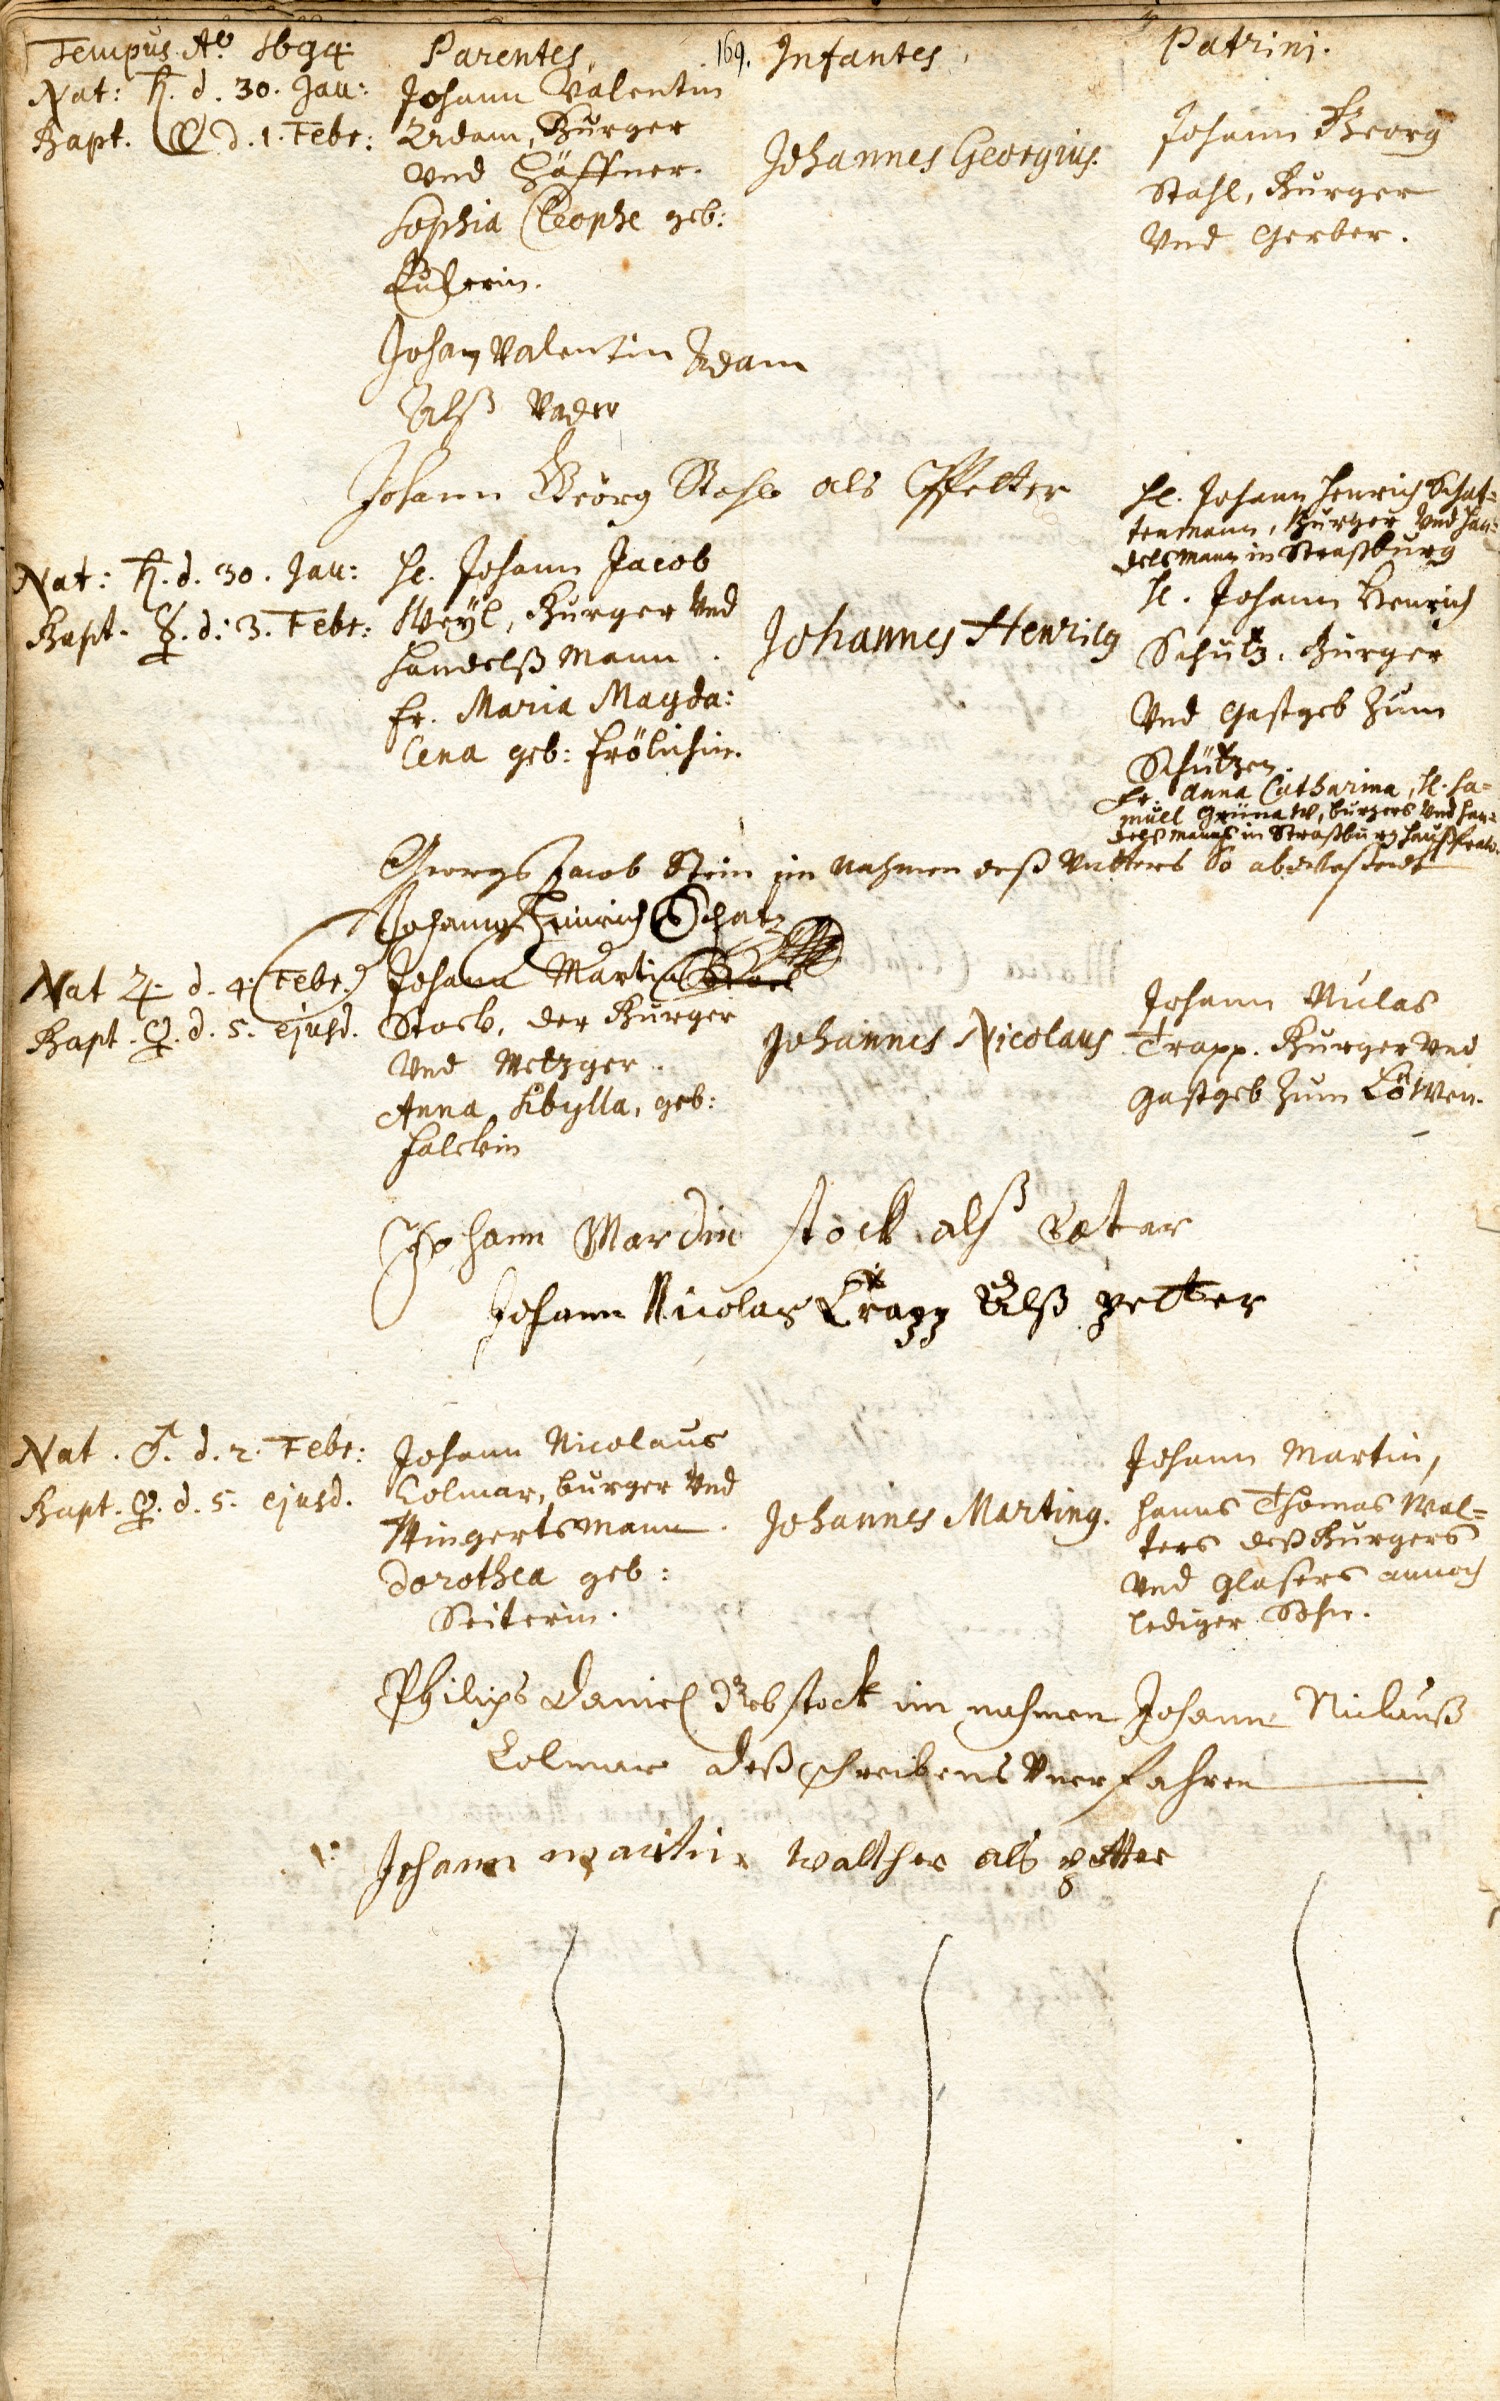 Tempus Aō 1694. Parentes. 169. Infantes. Patrini.
Nat: ♄. d. 30. Jan:
Bapt. ☾ d. 1. Febr:
Johann Valentin
Adam, Burger
Vnd Häffner.
Sophia Cleophe geb:
Johannes Georgius.
Johann Georg
Stahl, Burger
Vnd Gerber.
Johan Valentin Adam
Alß Vader
Johann Geörg Stahl als Pfetter
Nat: ♄. d. 30. Jan:
Bapt. ☿. d. 3. Febr:
H. Johann Jacob
Weyl, Burger Vnd
Handelß Mann.
Fr. Maria Magda:
lena geb: Frölichin.
Johannes Henricq
H. Johann Henrich Schat=
tenmann, Burger Vnd Han=
delsmann in Straßburg
H. Johann Henrich
Schütz, Burger
Vnd Gastgeb Zum
Schützen.
Fr. Anna Catharina, H. Sa=
muel Grünaw, burgers Vnd Han=
delsmanns in Straßburg Haußfraw.
Georg Jacob Stein im Nahmen deß Vatters so abwesendt
Johann Heinrich Schatz
Nat ♃. d. 4. (Febr.)
Bapt. ♀. d. 5. ejusd.
Johann Martin
Stock, der Burger
Vnd Metzger.
Anna Sibylla, geb:
Falckin
Johannes Nicolaus
Johann Niclas
Trapp. Burger Vnd
Gastgeb Zum Löwen.
Johann Mardin stock alß Vater
Johann Nicolas Trapp Alß petter
Nat. ♂. d. 2. Febr:
Bapt. ♀. d. 5. ejusd.
Johann Nicolaus
Colmar, burger Vnd
Wingertsmann.
Dorothea geb:
Seiterin.
Johannes Martinq.
Johann Martin,
Hanns Thomas Wal=
ters deß Burgers
Vnd Glasers annoch
lediger Sohn.
Philips Daniel Rebstock im nahmen Johann Niclauß
Colmar deß schreibens Vnerfahren
Johann martin walther als petter